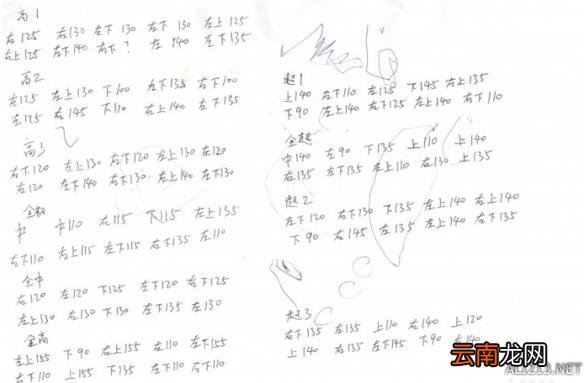 高1
右125 右130 左下130 右下130 左上125
右上125 右下140 右下? 左140 左下135
高2
左125 左上130 下100 左下135 右下100
左125 右145 下110 右上140 左下135
高3
右下120 左上130 右下120 左上130 左120
右120 左下140 右下130 左上140 左下130
全超
中 中110 右115 下115 左上135
右下110 右上115 左下115 右下135 左110
全中
右120 左120 下125 左下120 右下125
左上130 右130 下130 左下135 左130
全高
左上155 下90 右上155 左110 左下155
右下110 上155 下135 左下110 右下110
超1
上140 右下110 左125 下145 右上135
下90 左上140 右下125 左上140 右下110
全超
中140 左90 下135 上110 上140
右135 左下135 左上110 右130 上135
超2
左下120 右下130 下135 左上140 右上140
下90 右145 左135 左上140 右下135
超3
右下135 左135 上110 右140 上120
上140 右135 左下145 下90 右140
云南龙网